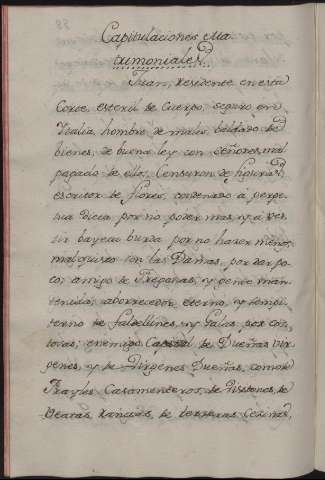 Capitulaciones Ma
trimoniales
Juan, residente en esta
Corte, esteril de Cuerpo, seguro en
Italia hombre de malo, de
bienes, de buena ley con Señores, mal
pagado de ellos, Censuron de figuras,
escritor de flores, condenado á perpe
tua dieta por no poder mas, y á ves
tir bayeta burda por no hazer menos,
mal quisto con las Damas, por dar po
co; amigo de Fregonas, y gente man
tenida; aborrecedor eterno, y sempi
terno de faldellines, y Galas por con
tores; enemigo de Dueñas Vir
genes, y de Virgenes Dueñas, como de
Frayles Casamenteros, de de
Beatas, rancias, de terceras Cecinas,